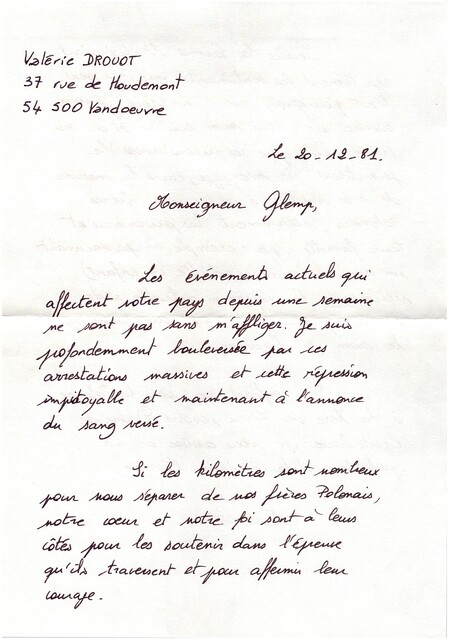 Valérie DROUOT
37 rue de Houdemont
54 500 Vandoeuvre
Le 20-12-81.
Monseigneur Glemp,
Les événements actuels qui
affectent votre pays depuis une semaine
ne sont pas sans m'affliger. Je suis
pofondemment bouleversée par ces
arrestations massives et cette répression
impitoyable et maintenant à l'annonce
du sang versé.
Si les kilomètres sont nombreux
pour nous séparer de nos frères Polonais,
notre coeur et notre foi sont à leurs
côtés pour les soutenir dans l'épreuve
qu'ils traversent et pour affermir leur
courage.